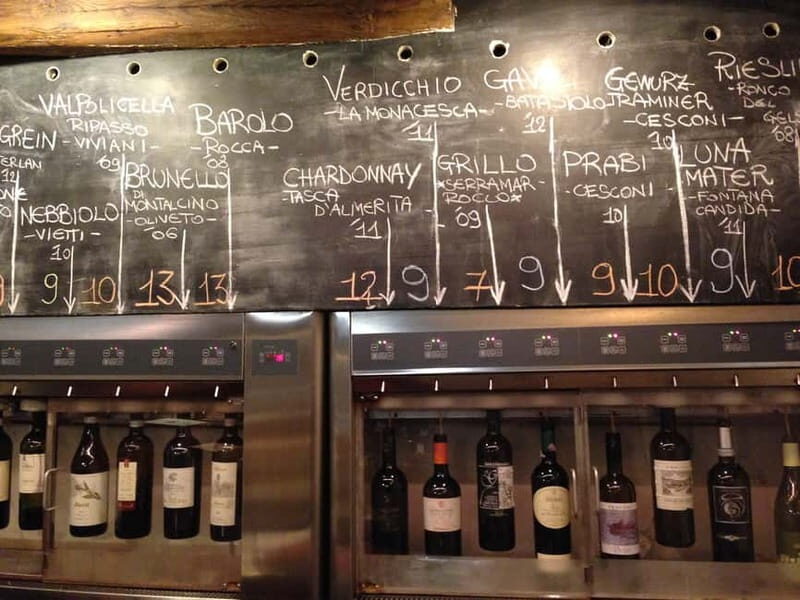 GREIN
TERLAN
12
NEBBIOLO
-VIETTI-
10
9
VALPOLICELLA
RIPASSO
-VIVIANI-
09
10
BRUNELLO
DI
MONTALCINO
-OLIVETO-
06
13
BAROLO
-ROCCA-
08
13
CHARDONNAY
-TASCA
D'ALMERITA
11
12
VERDICCHIO
-LA MONACESCA-
11
9
GRILLO
*SERRAMAR
ROCCO*
09
7
GAVI
-BATASIOLO
12
9
PRABI
-CESCONI-
10
9
GEWURZ
TRAMINER
-CESCONI-
10
10
LUNA
MATER
-FONTANA
CANDIDA-
11
9
RIESLI
-RONCO
DEL
GELS
08
10